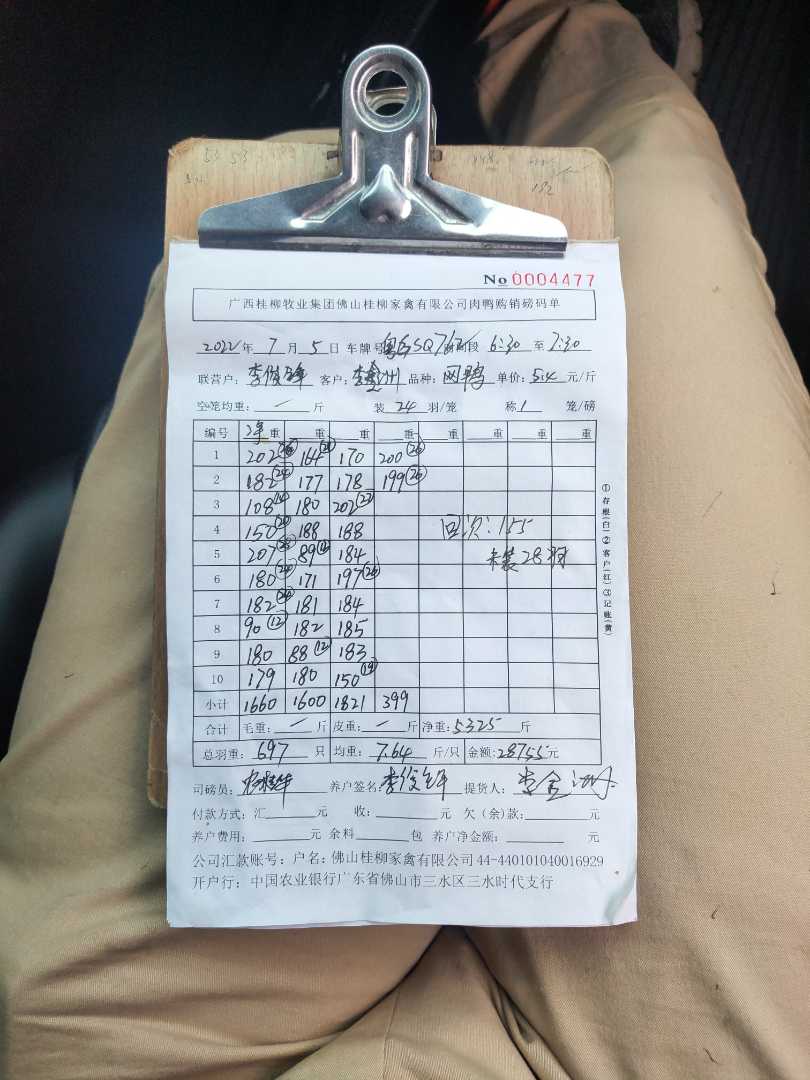 53 53
182
No 0004477
广西桂柳牧业集团佛山桂柳家禽有限公司肉鸭购销磅码单
2022年 7月 5日 车牌号 粤 SQ762 时间段 6:30 至 7:30
联营户: 李俊锋 客户: 李 州 品种: 网鸭 单价: 5.4 元/斤
空笼均重: / 斤 装 24 羽/笼 称 1 笼/磅
编号 净重 重 重 重 重 重 重 重
1 202 164 170 200(26)
2 182(24) 177 178 199(26)
3 108(14) 180 202(27)
4 150(20) 188 188
5 207 89(12) 184
6 180(24) 171 197(26)
7 182(24) 181 184
8 90(12) 182 185
9 180 88(12) 183
10 179 180 150(19)
小计 1660 1600 1821 399
回次:155
卡装28羽
合计 毛重: / 斤 皮重: / 斤 净重: 5325 斤
总羽重: 697 只 均重: 7.64 斤/只 金额: 28755元
司磅员: 养户签名: 李俊锋 提货人: 李金
付款方式: 汇 元 收: 元 欠(余)款: 元
养户费用: 元 余料 包 养户净金额: 元
公司汇款账号: 户名: 佛山桂柳家禽有限公司 44-440101040016929
开户行: 中国农业银行广东省佛山市三水区三水时代支行
①存根(白)②客户(红)③记账(黄)